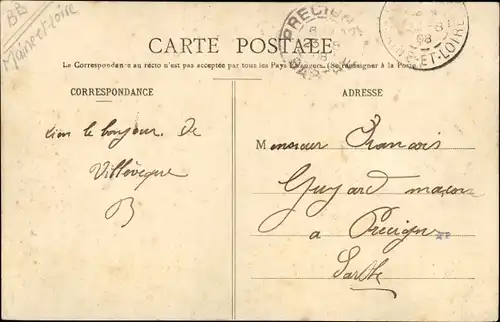 BB
Maine et Loire
PRECIGNE
28
8
08
ET-LOIRE
CARTE POSTALE
La Correspondance au recto n'est pas acceptée par tous les Pays Etrangers. (Se renseigner à la Poste.)
CORRESPONDANCE
le bonjour. De
Villevêque
B
ADRESSE
Monsieur Francois
Guyard maçon
a Precigne
Sarthe